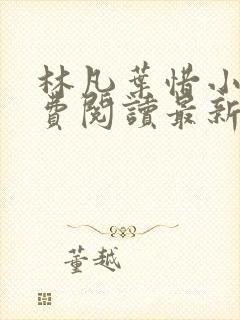 林凡葉惜小
費閱讀最新
董越